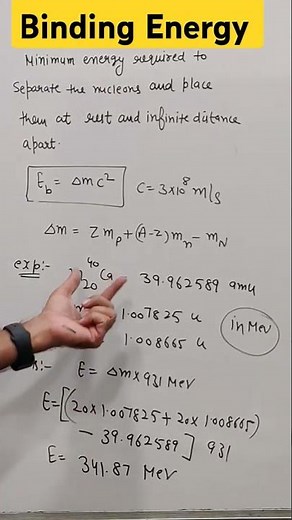 Binding Energy
Minimum energy required to
Separate the nucleons and place
them at rest and infinite distance
apart.
E_b = Δmc² C = 3×10⁸ m/s
Δm = Z m_p + (A-Z) m_n - m_N
exp:- ⁴⁰₂₀Ca = 39.962589 amu
1.007825 u
1.008665 u
in MeV
:- E = Δm × 931 MeV
E = [(20×1.007825 + 20×1.008665)
- 39.962589] 931
E = 341.87 MeV